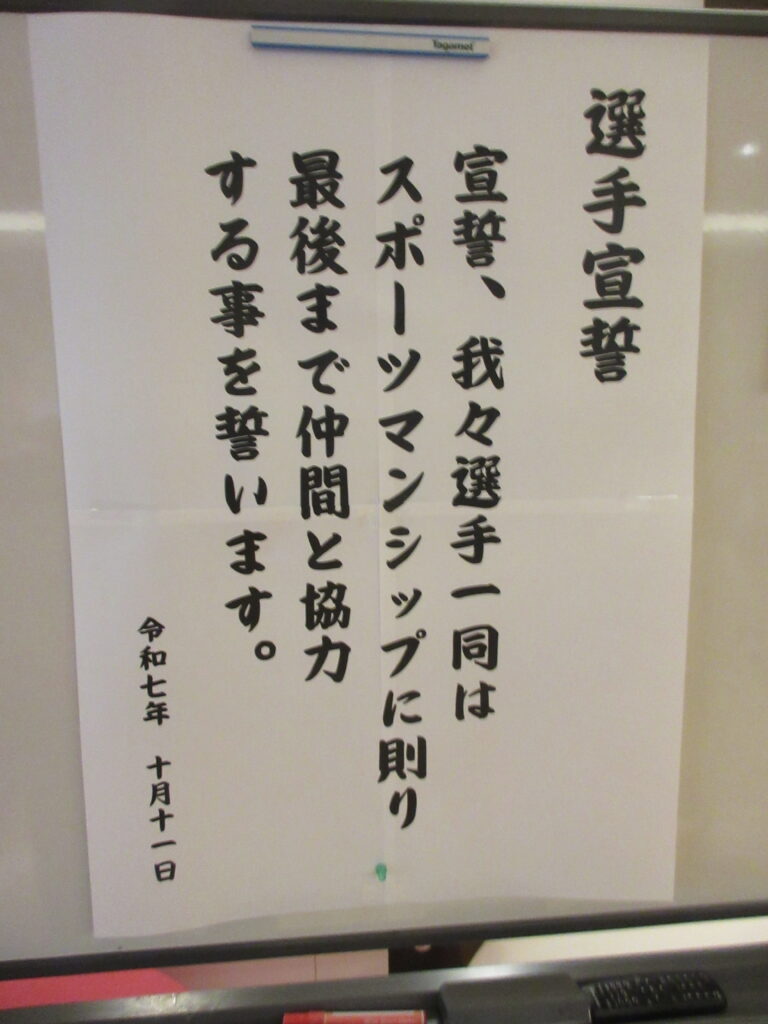 選手宣誓
宣誓、我々選手一同は
スポーツマンシップに則り
最後まで仲間と協力
する事を誓います。
令和七年 十月十一日